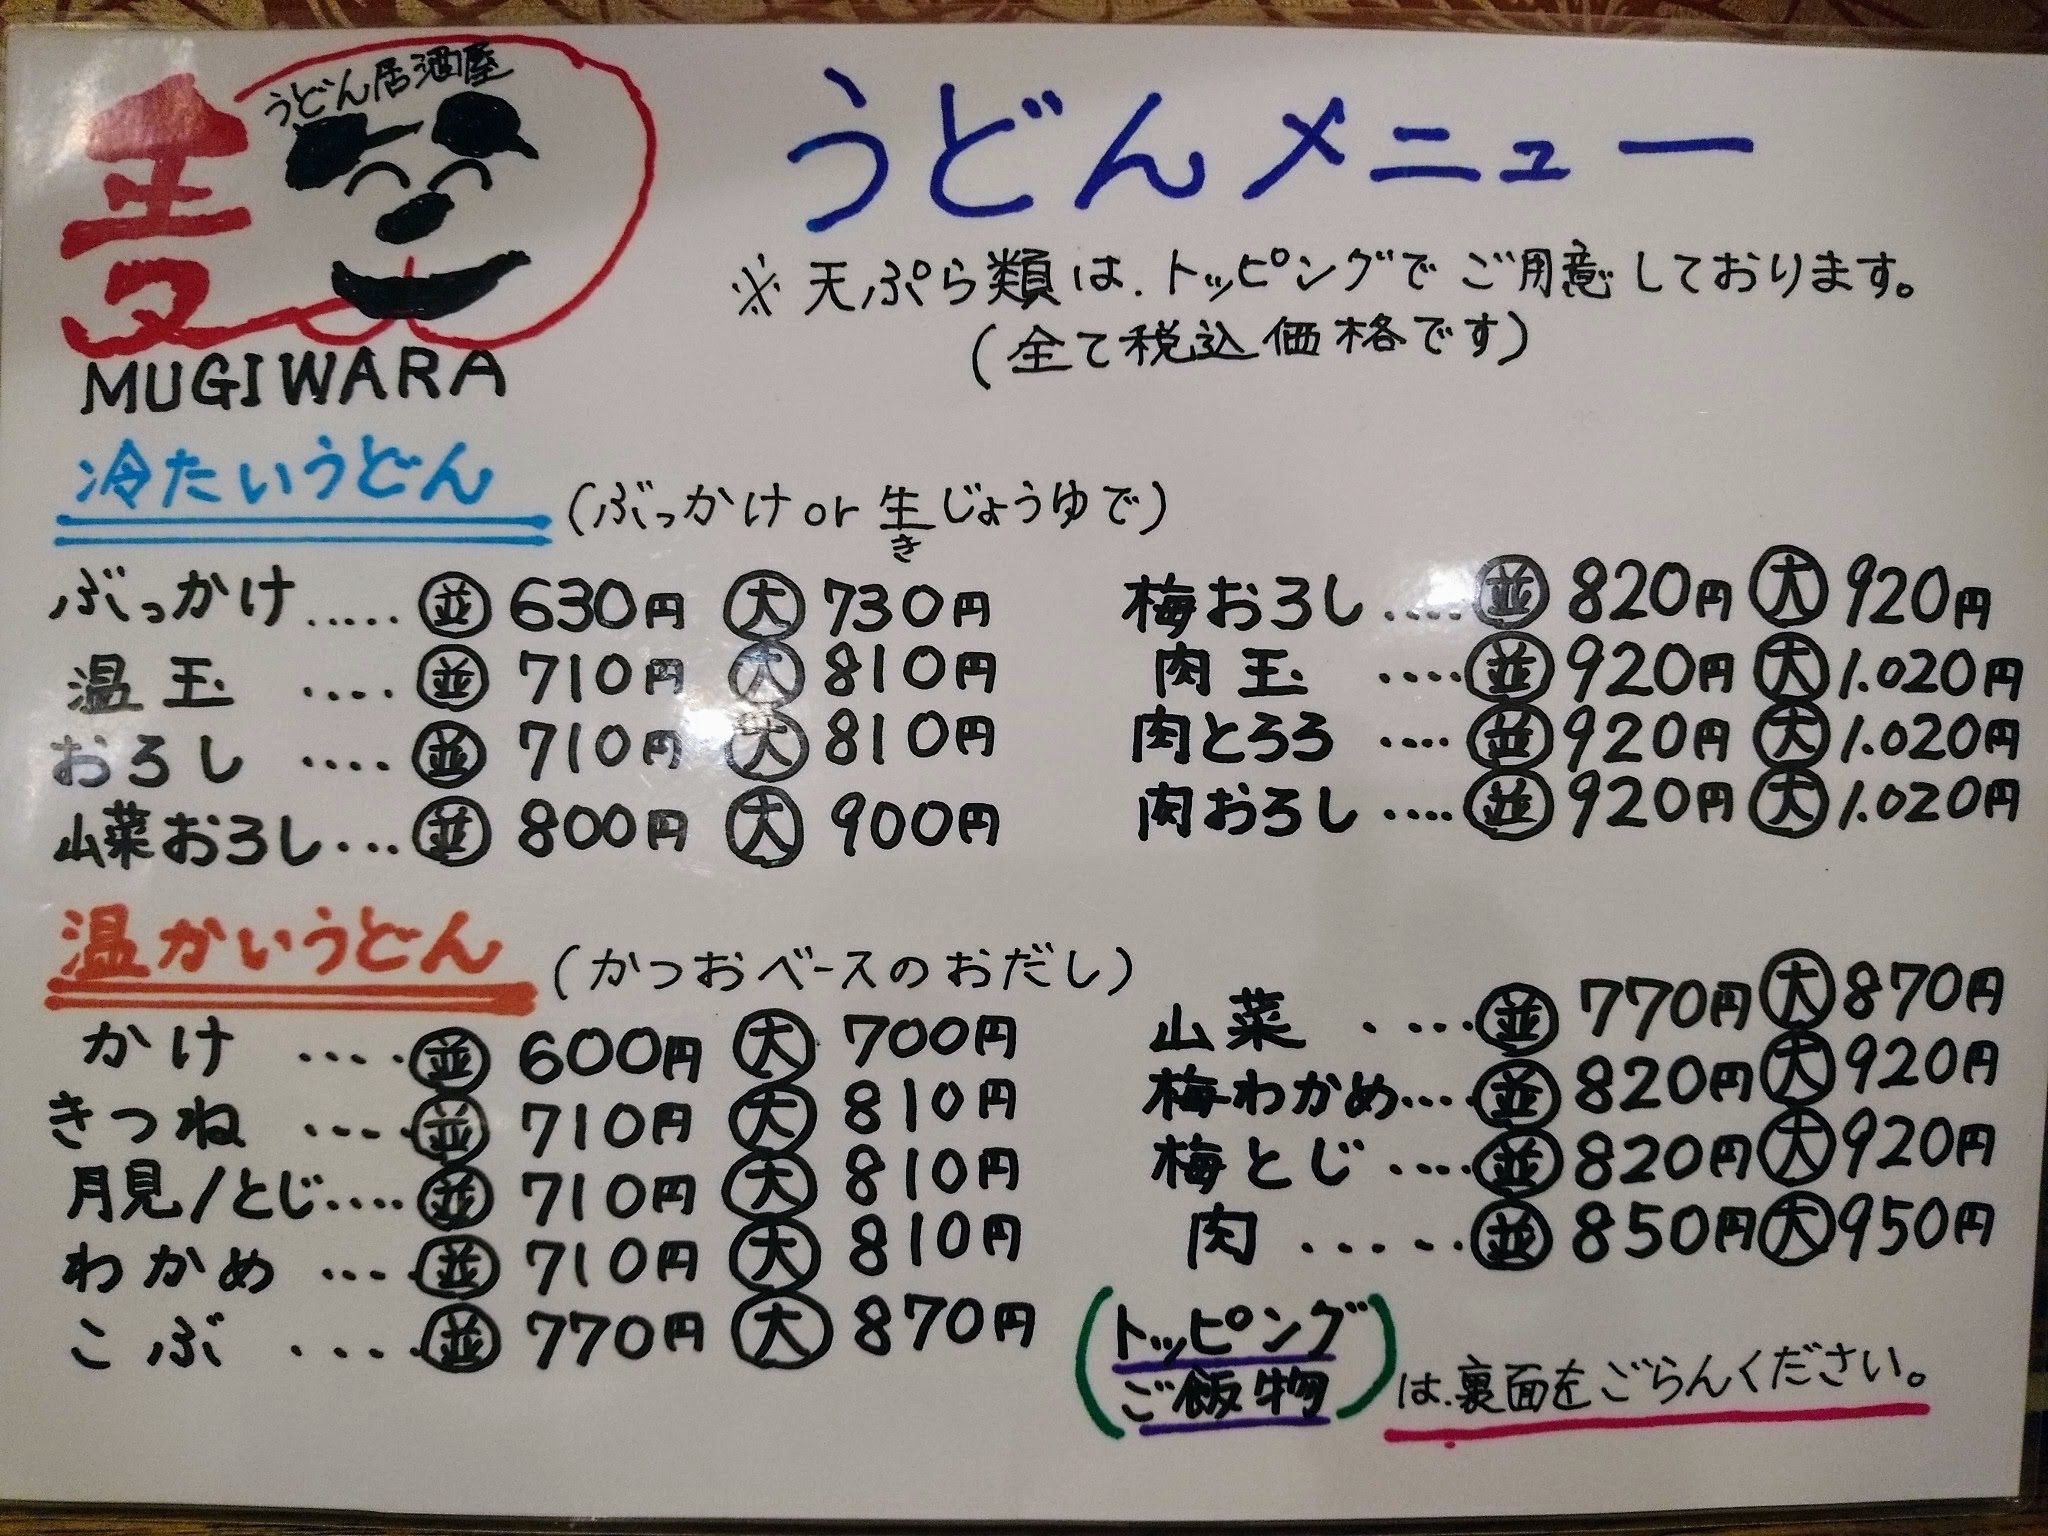 うどん居酒屋
麦
MUGIWARA
うどんメニュー
※天ぷら類は、トッピングでご用意しております。
(全て税込価格です)
冷たいうどん (ぶっかけ or 生じょうゆで)
き
ぶっかけ..... 並 630円 大 730円
温玉 .... 並 710円 大 810円
おろし .... 並 710円 大 810円
山菜おろし... 並 800円 大 900円
梅おろし.... 並 820円 大 920円
肉玉 .... 並 920円 大 1.020円
肉とろろ .... 並 920円 大 1.020円
肉おろし .... 並 920円 大 1.020円
温かいうどん (かつおベースのおだし)
かけ .... 並 600円 大 700円
きつね .... 並 710円 大 810円
月見/とじ.... 並 710円 大 810円
わかめ .... 並 710円 大 810円
こぶ .... 並 770円 大 870円
山菜 .... 並 770円 大 870円
梅わかめ.... 並 820円 大 920円
梅とじ .... 並 820円 大 920円
肉 ..... 並 850円 大 950円
(トッピング
ご飯物) は、裏面をごらんください。